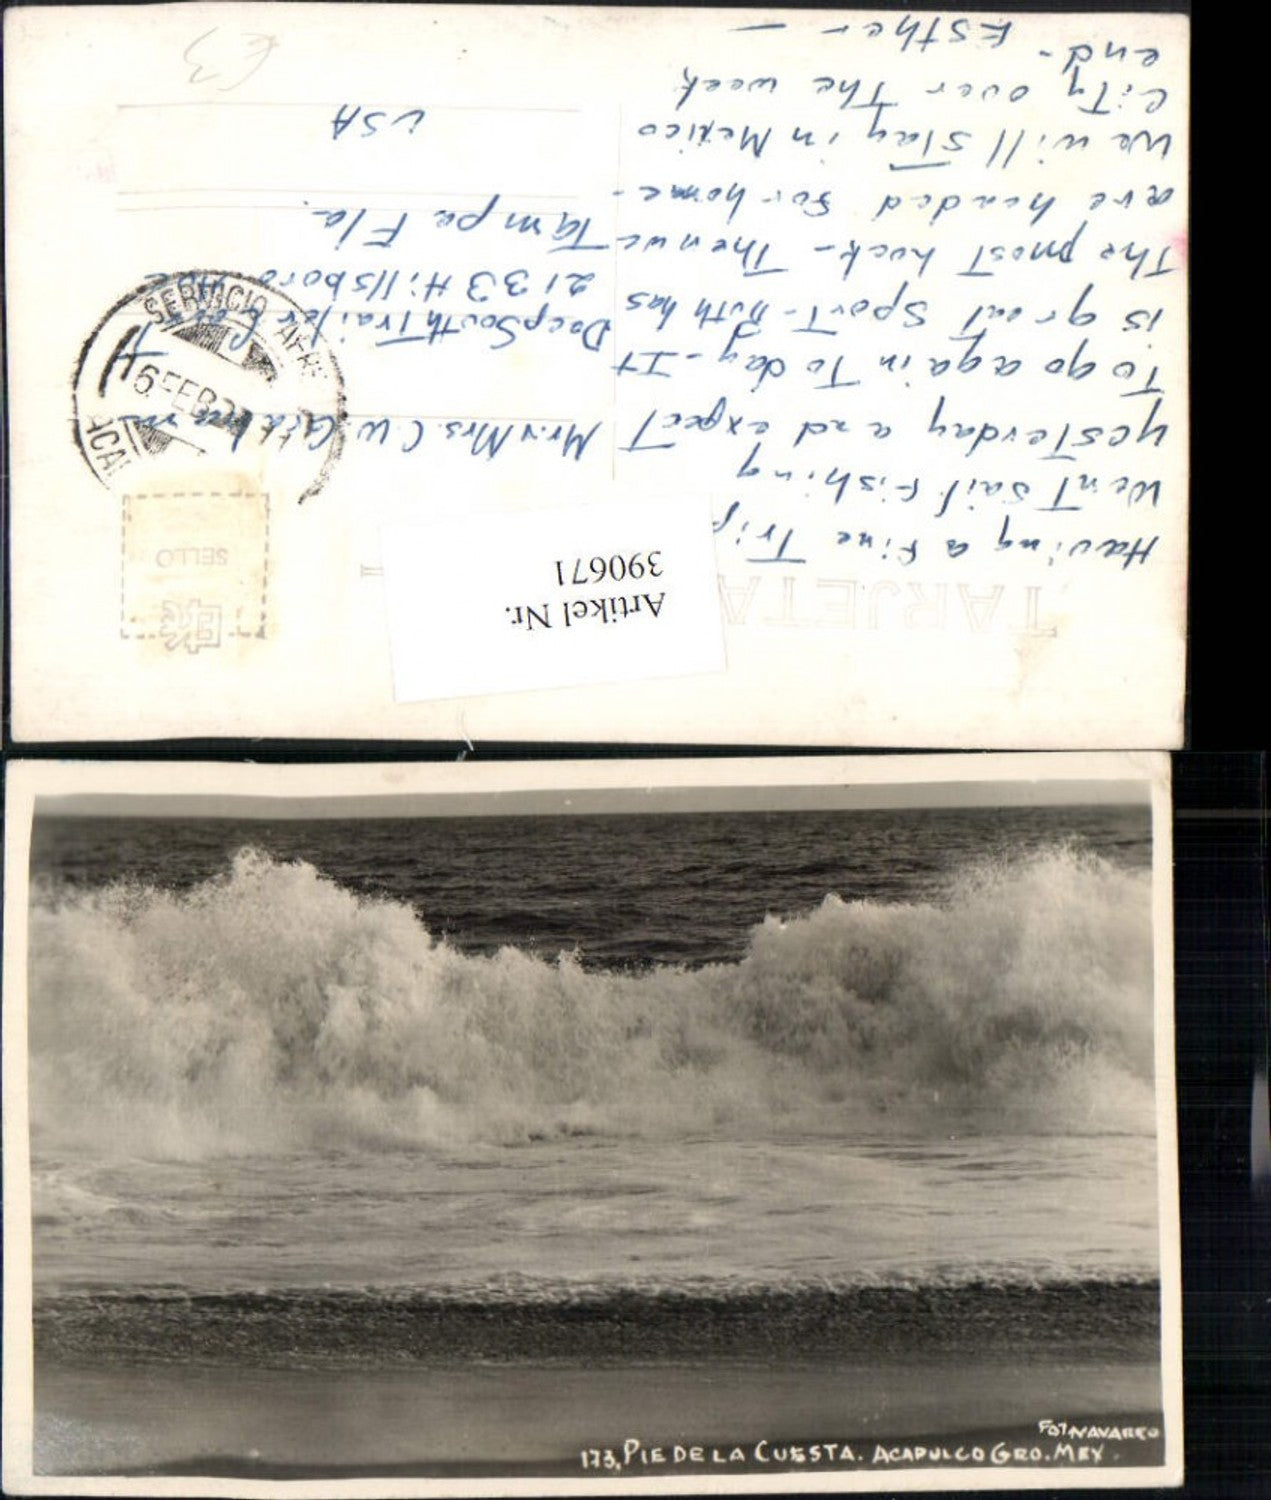 TARJETA
Having a fine Trip
Went Sail Fishing
yesterday and expect
To go again Today - It
is great Sport - Ruth has
The most luck - Then we
are headed for home -
We will Stay in Mexico
City over The week
end - Esther -
Artikel Nr.
390671
SELLO
SERVICIO AERE
6 FEB
ACA
Mr. & Mrs. C. W.
Deep South Trailer
2133 Hillsboro Ave
Tampa Fla.
USA
63
FOT NAVARRO
173, PIE DE LA CUESTA. ACAPULCO GRO. MEX.